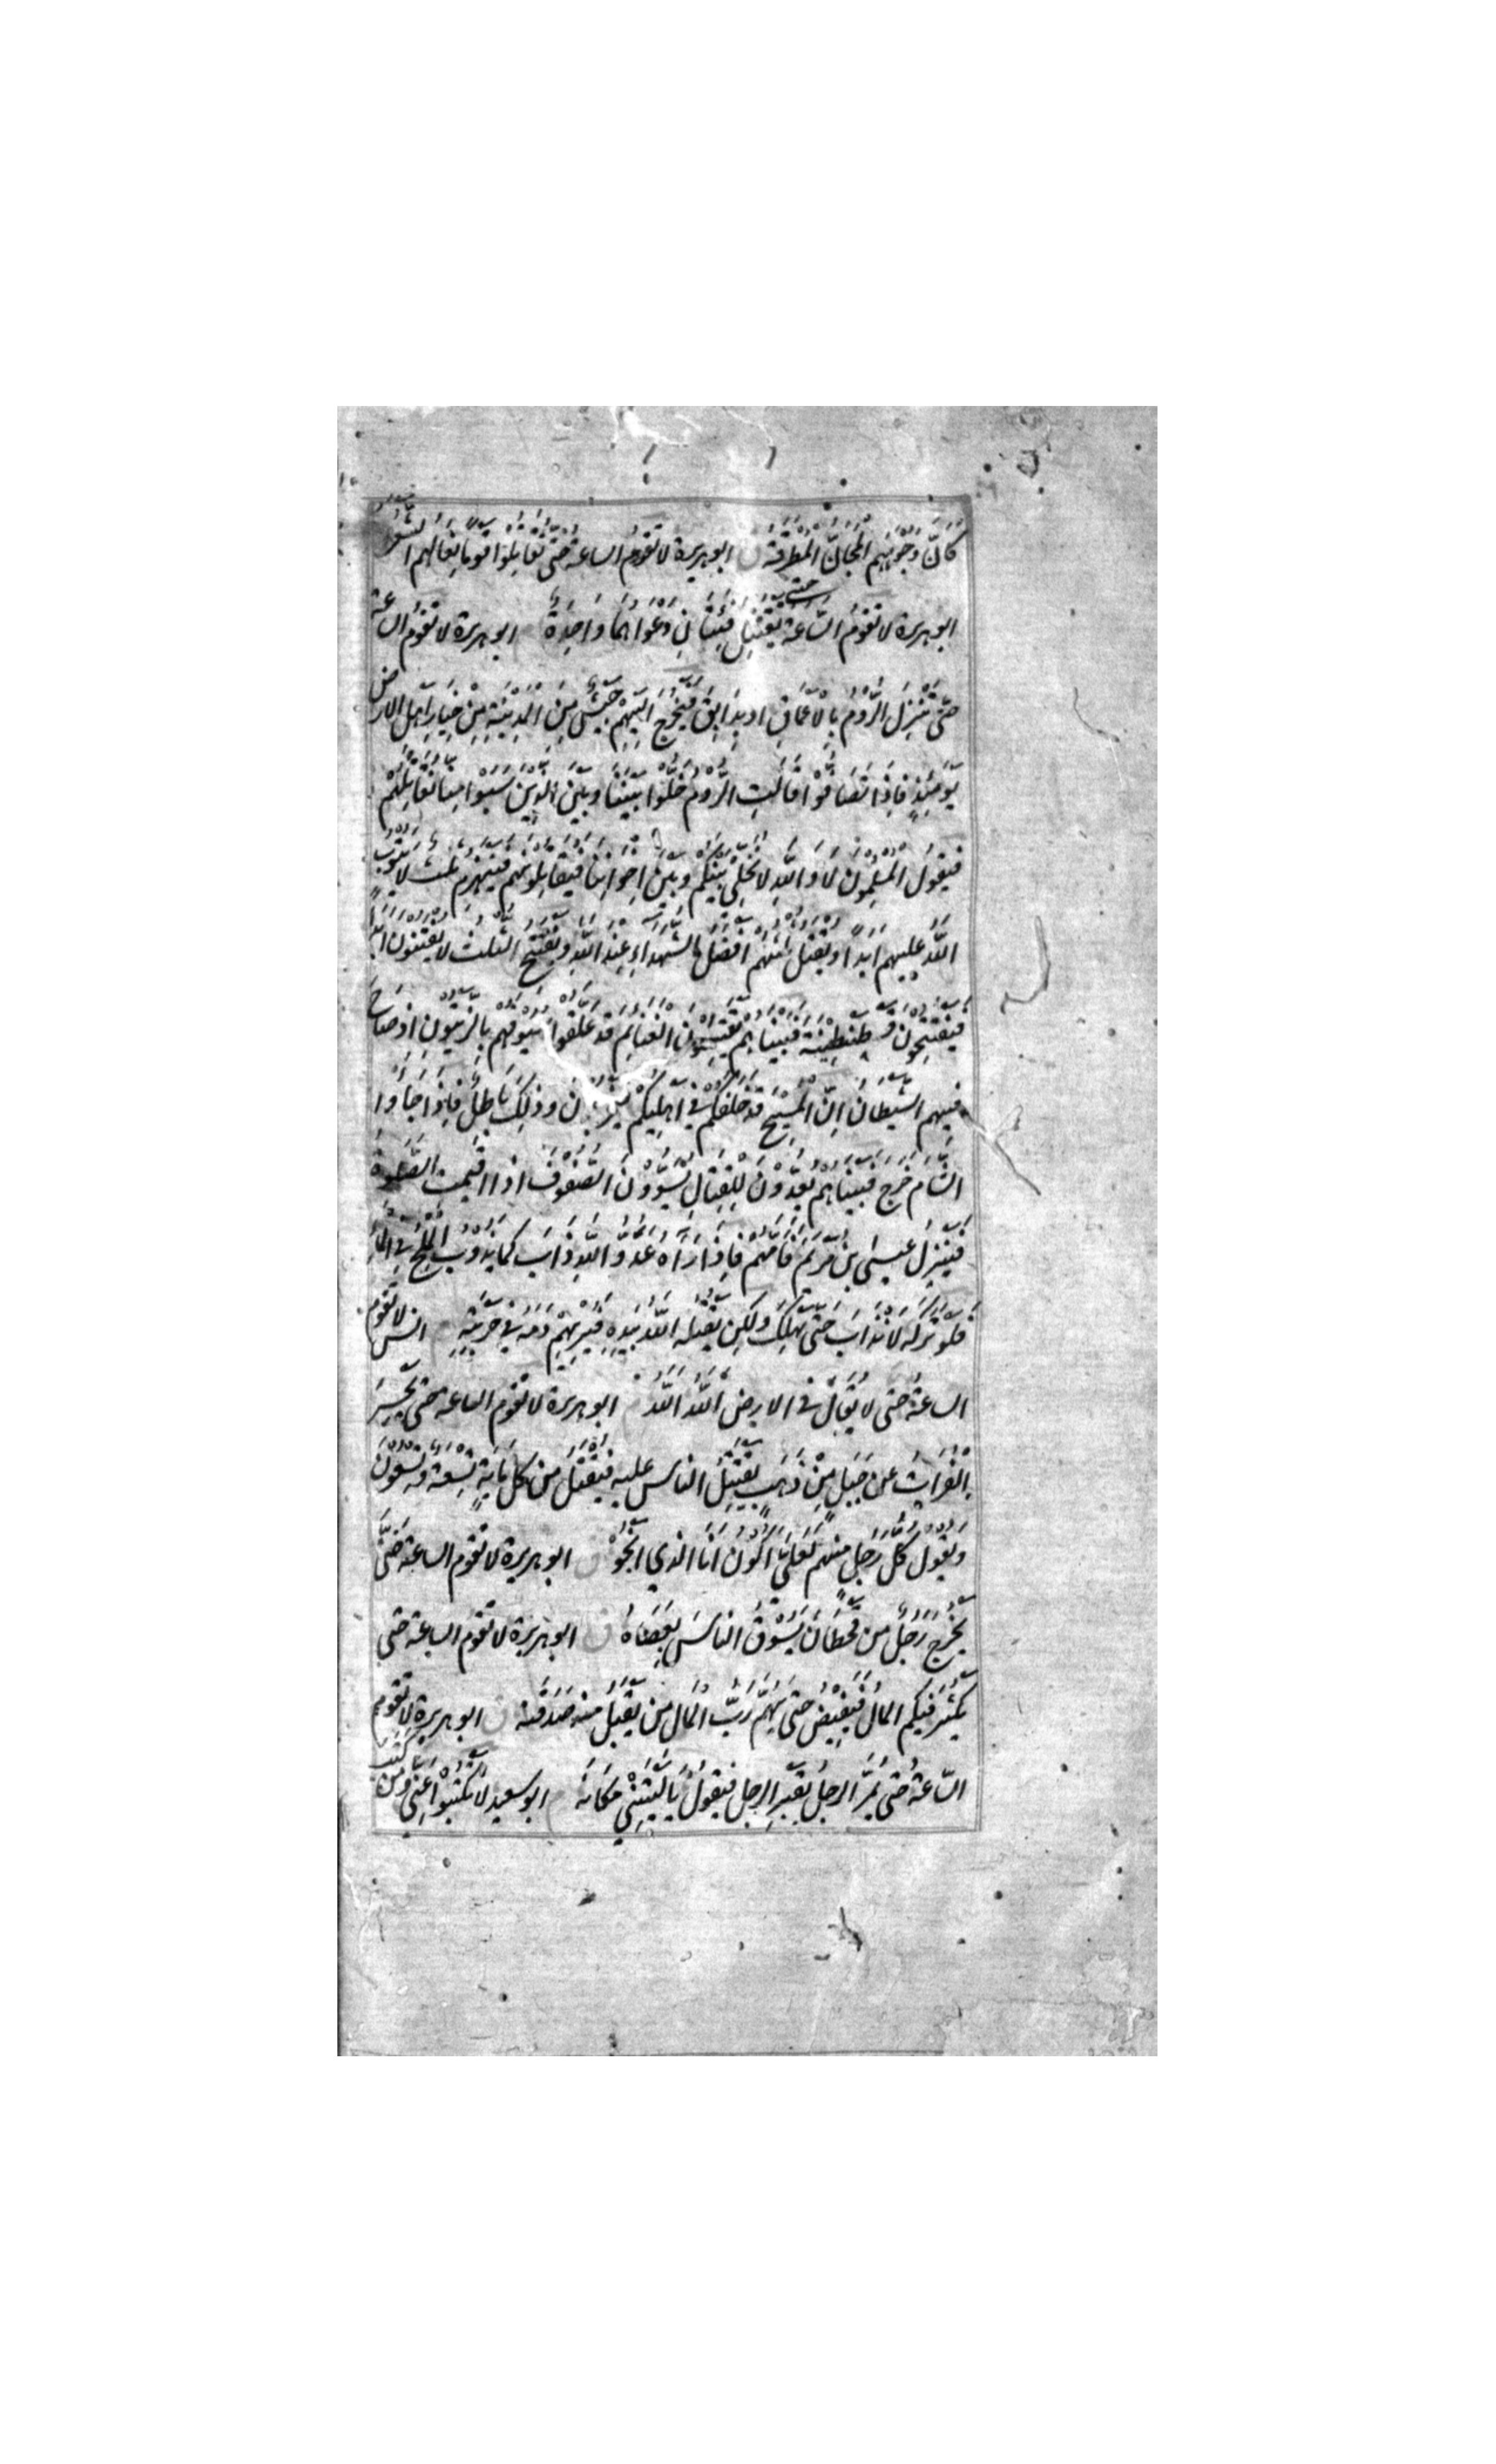 كَانَّ وُجُوْهَهُم الْمَجَانُّ الْمُطْرَقَةُ ق ابو هريرة لا تقوم الساعة حتى تُقَاتِلُوْا قوما نِعَالُهم الشَّعْرُ
ابو هريرة لا تقومُ السَّاعَةُ حتى يَقْتَتِلَ فِئَتَانِ دَعْوَاهُمَا وَاحِدَةٌ ابو هريرة لا تَقُومُ الساعة
حتّى تَنْزِلَ الرُّوْمُ بِالْاَعْمَاقِ او بِدَابِقَ فَيَخْرُجُ اِلَيْهِمْ جَيْشٌ مِنَ الْمَدِيْنَةِ مِنْ خِيَارِ اَهْلِ الارض
يَوْمَئِذٍ فَاِذَا تَصَافُّوْا قَالَتِ الرُّوْمُ خَلُّوْا بَيْنَنَا وبَيْنَ الَّذِيْنَ سَبَوْا مِنَّا نُقَاتِلُهُمْ
فيَقُولُ الْمُسْلِمُونَ لَا وَاللّٰهِ لَا نُخَلِّيْ بَيْنَكُم وبَيْنَ اِخْوَانِنَا فَيُقَاتِلُوْنَهُمْ فَيَنْهَزِمُ ثُلُثٌ لَا يَتُوْبُ
اللّٰهُ عَلَيهِم اَبَدًا ويُقْتَلُ ثُلُثُهُمْ اَفْضَلُ الشُّهَدَاءِ عِنْدَ اللّٰهِ ويَفْتَتِحُ الثُّلُثُ لا يُفْتَنُوْنَ ابدًا
فيَفْتَتِحُوْنَ قُسْطَنْطِيْنِيَّةَ فَبَيْنَا هُمْ يَقْتَسِمُوْنَ الْغَنَائِمَ قَدْ عَلَّقُوْا سُيُوْفَهُمْ بِالزَّيْتُوْنِ اذ صَاحَ
فِيهم الشَّيْطَانُ اِنَّ الْمَسِيْحَ قَدْ خَلَفَكُمْ فِيْ اَهْلِيْكُمْ فَيَخْرُجُوْنَ وذٰلِكَ بَاطِلٌ فَاِذَا جَاؤا
الشَّام خَرَجَ فَبَيْنَا هُم يُعِدُّوْنَ لِلْقِتَالِ يُسَوُّوْنَ الصُّفُوْفَ اذا اُقِيْمت الصَّلٰوةُ
فَيَنْزِلُ عِيسَى بنُ مَرْيَمَ فَاَمَّهُم فَاِذَا رَاٰهُ عَدُوُّ اللّٰهِ ذَابَ كَمَا يَذُوْبُ الْمِلْحُ فِي الْمَاءِ
فَلَوْ تَرَكَهُ لَانْذَابَ حَتّٰى يَهْلِكَ وَلكِنْ يَقْتُلُهُ اللّٰهُ بِيَدِهِ فَيُرِيْهِمْ دَمَهُ فِيْ حَرْبَتِهِ م انس لا تقوم
الساعةُ حتى لا يُقَالَ في الارض اَللّٰهُ اَللّٰهُ م ابو هريرة لا تقوم الساعة حتى يَحْسِرَ
الْفُرَاتُ عن جَبَلٍ مِنْ ذَهَبٍ يَقْتَتِلُ الناس عليه فَيُقْتَلُ مِن كل مِائَةٍ تِسْعَةٌ وتِسْعُوْنَ
ويَقُوْلُ كُلُّ رَجُلٍ مِنهم لَعَلِّيْ اَكُوْنُ اَنَا الذي اَنْجُوْ ق ابو هريرة لا تقوم الساعة حَتّٰى
يَخْرُجَ رَجُلٌ من قَحْطَانَ يَسُوْقُ الناسَ بِعَصَاهُ ق ابو هريرة لا تقوم الساعة حتى
يَكْثُرَ فيكم المالُ فَيَفِيْضُ حتى يُهِمَّ رَبَّ الْمَالِ مَن يَقْبَلُ مِنه صَدَقَتَهُ ق ابو هريرة لا تقوم
السّاعةُ حتى يَمُرَّ الرجلُ بِقَبْرِ الرجل فيقولُ يَا لَيْتَنِيْ مَكَانَهُ م ابو سعيد لَا تَكْتُبُوْا عَنِّي ومَن كَتَبَ